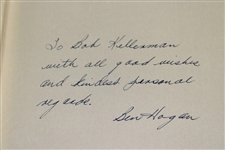 To Bob Kellerman
with all good wishes
and kindest personal
regards.
Ben Hogan